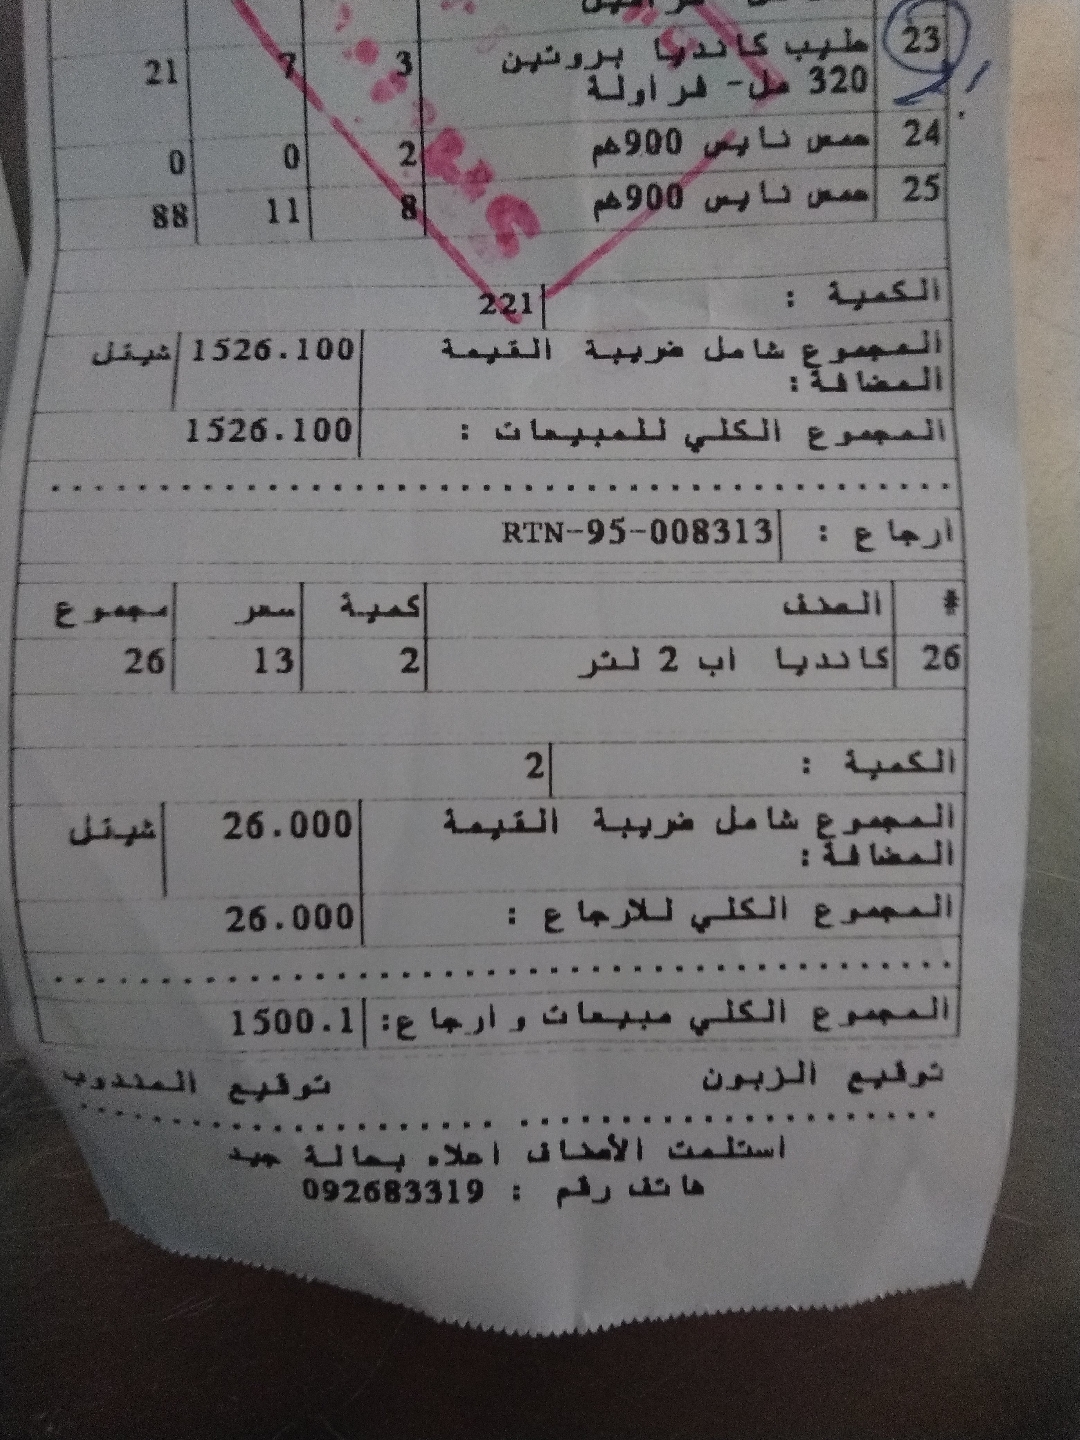 23 حليب كانديا بروتين 3 7 21
320 مل- فراولة
24 حمص نايس 900هم 2 0 0
25 حمص نايس 900هم 8 11 88
الكمية : 221
المجموع شامل ضريبة القيمة 1526.100 شيقل
المضافة:
المجموع الكلي للمبيعات : 1526.100
ارجاع : RTN-95-008313
# الصنف كمية سعر مجموع
26 كانديا اب 2 لتر 2 13 26
الكمية : 2
المجموع شامل ضريبة القيمة 26.000 شيقل
المضافة:
المجموع الكلي للارجاع : 26.000
المجموع الكلي مبيعات و ارجاع: 1500.1
توقيع الزبون توقيع المندوب
استلمت الأصناف اعلاه بحالة جيد
هاتف رقم : 092683319